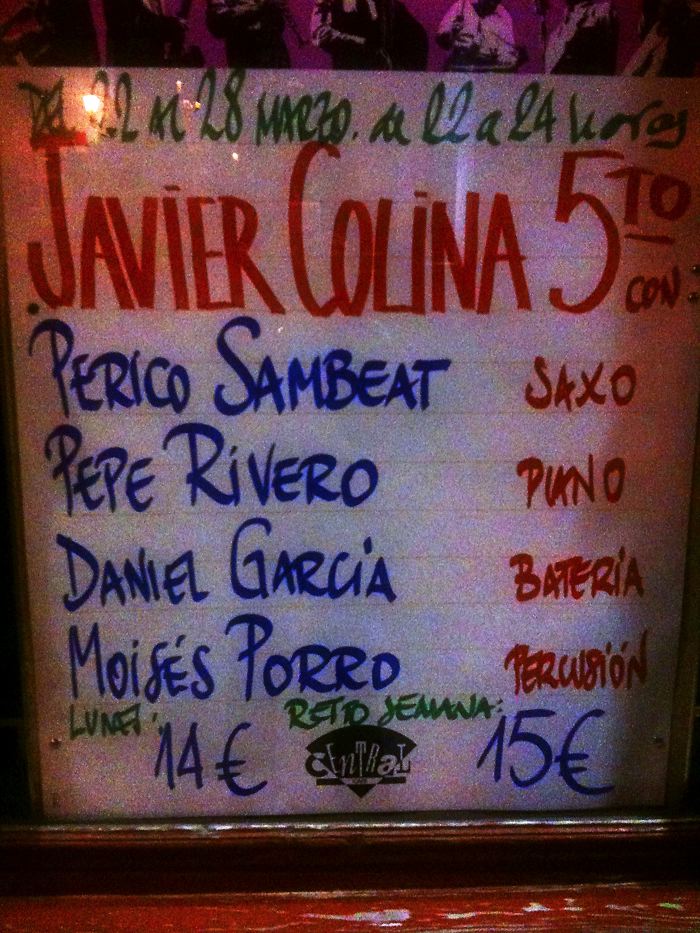 DEL 22 al 28 MARZO. de 22 a 24 horas
JAVIER COLINA 5TO
CON:
PERICO SAMBEAT SAXO
PEPE RIVERO PIANO
DANIEL GARCÍA BATERÍA
MOISÉS PORRO PERCUSIÓN
LUNES: 14€ RESTO SEMANA: 15€
CENTRAL